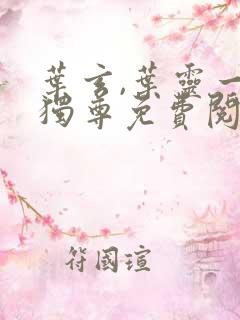 葉玄,葉靈一
獨尊免費閱
符國瑄